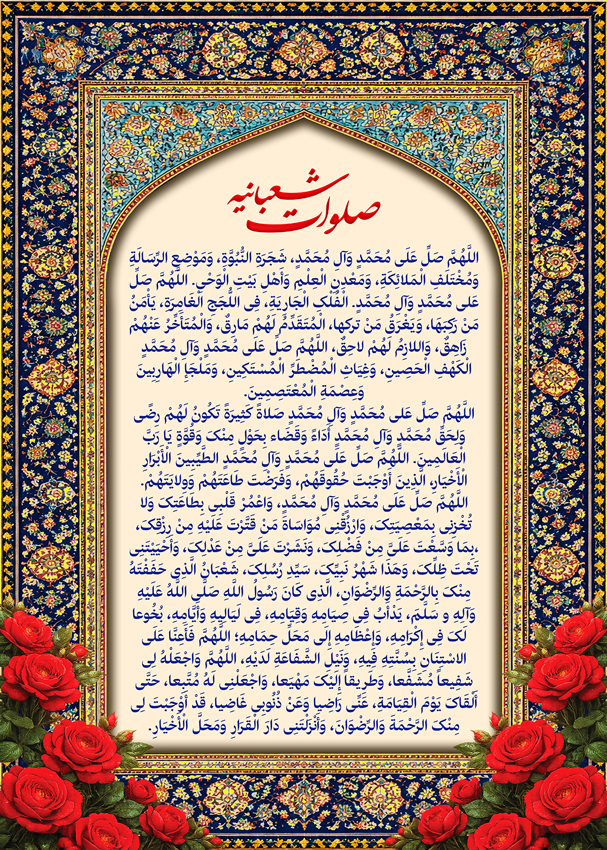 صلوات شعبانیه
اللَّهُمَّ صَلِّ عَلَی مُحَمَّدٍ وَآلِ مُحَمَّدٍ، شَجَرَةِ النُّبُوَّةِ، وَمَوْضِعِ الرِّسَالَةِ
وَمُخْتَلَفِ الْمَلائِکَةِ، وَمَعْدِنِ الْعِلْمِ وَأَهْلِ بَیْتِ الْوَحْیِ. اللَّهُمَّ صَلِّ
عَلی مُحَمَّدٍ وَآلِ مُحَمَّدٍ. الْفُلْکِ الْجَارِیَةِ، فِی اللُّجَجِ الْغَامِرَةِ، یَأْمَنُ
مَنْ رَکِبَهَا، وَیَغْرَقُ مَنْ تَرکها، الْمُتَقَدِّمُ لَهُمْ مَارِقٌ، وَالْمُتَأَخِّرُ عَنْهُمْ
زَاهِقٌ، وَاللازِمُ لَهُمْ لاحِقٌ، اللَّهُمَّ صَلِّ عَلَی مُحَمَّدٍ وَآلِ مُحَمَّدٍ
الْکَهْفِ الْحَصِینِ، وَغِیَاثِ الْمُضْطَرِّ الْمُسْتَکِینِ، وَمَلْجَإِ الْهَارِبِینَ
وَعِصْمَةِ الْمُعْتَصِمِینَ.
اللَّهُمَّ صَلِّ عَلی مُحَمَّدٍ وَآلِ مُحَمَّدٍ صَلاةً کَثِیرَةً تَکُونُ لَهُمْ رِضًی
وَلِحَقِّ مُحَمَّدٍ وَآلِ مُحَمَّدٍ أَدَاءً وَقَضَاء بِحَوْلٍ مِنْکَ وَقُوَّةٍ یَا رَبَّ
الْعَالَمِینَ. اللَّهُمَّ صَلِّ عَلَی مُحَمَّدٍ وَآلِ مُحَمَّدٍ الطَّیِّبِینَ الْأَبْرَارِ
الْأَخْیَارِ، الَّذِینَ أَوْجَبْتَ حُقُوقَهُمْ، وَفَرَضْتَ طَاعَتَهُمْ وَوِلایَتَهُمْ.
اللَّهُمَّ صَلِّ عَلَی مُحَمَّدٍ وَآلِ مُحَمَّدٍ، وَاعْمُرْ قَلْبِی بِطَاعَتِکَ وَلا
تُخْزِنِی بِمَعْصِیَتِکَ، وَارْزُقْنِی مُوَاسَاةَ مَنْ قَتَّرْتَ عَلَیْهِ مِنْ رِزْقِکَ،
بِمَا وَسَّعْتَ عَلَیَّ مِنْ فَضْلِکَ، وَنَشَرْتَ عَلَیَّ مِنْ عَدْلِکَ، وَأَحْیَیْتَنِی،
تَحْتَ ظِلِّکَ، وَهَذَا شَهْرُ نَبِیِّکَ، سَیِّدِ رُسُلِکَ، شَعْبَانُ الَّذِی حَفَفْتَهُ
مِنْکَ بِالرَّحْمَةِ وَالرِّضْوَانِ، الَّذِی کَانَ رَسُولُ اللَّهِ صَلَّی اللَّهُ عَلَیْهِ
وَآلِهِ و سَلَّمَ، یَدْأَبُ فِی صِیَامِهِ وَقِیَامِهِ، فِی لَیَالِیهِ وَأَیَّامِهِ، بُخُوعا
لَکَ فِی إِکْرَامِهِ، وَإِعْظَامِهِ إِلَی مَحَلِّ حِمَامِهِ؛ اللَّهُمَّ فَأَعِنَّا عَلَی
الاسْتِنَانِ بِسُنَّتِهِ فِیهِ، وَنَیْلِ الشَّفَاعَةِ لَدَیْهِ، اللَّهُمَّ وَاجْعَلْهُ لِی
شَفِیعاً مُشَفَّعا، وَطَرِیقاً إِلَیْکَ مَهْیَعا، وَاجْعَلْنِی لَهُ مُتَّبِعا، حَتَّی
أَلْقَاکَ یَوْمَ الْقِیَامَةِ، عَنِّی رَاضِیا وَعَنْ ذُنُوبِی غَاضِیا، قَدْ أَوْجَبْتَ لِی
مِنْکَ الرَّحْمَةَ وَالرِّضْوَانَ، وَأَنْزَلْتَنِی دَارَ الْقَرَارِ وَمَحَلَّ الْأَخْیَارِ.